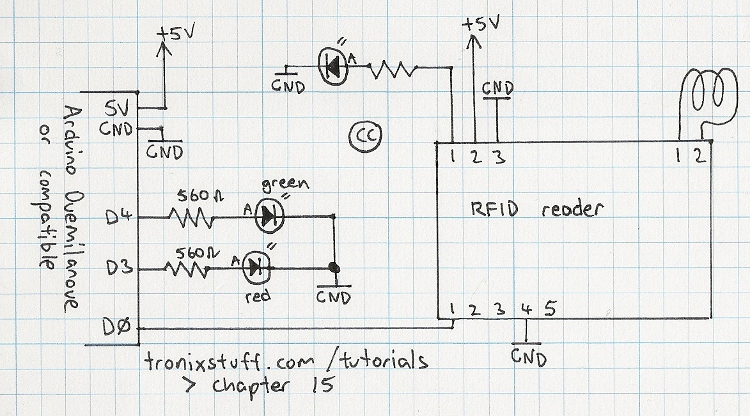 +5V
+5V
A
GND
GND
5V
GND
GND
CC
1 2 3
1 2
Arduino Duemilanove
or compatible
RFID reader
green
560Ω
D4
A
560Ω
D3
A
red
GND
1 2 3 4 5
DØ
GND
tronixstuff.com/tutorials
> chapter 15